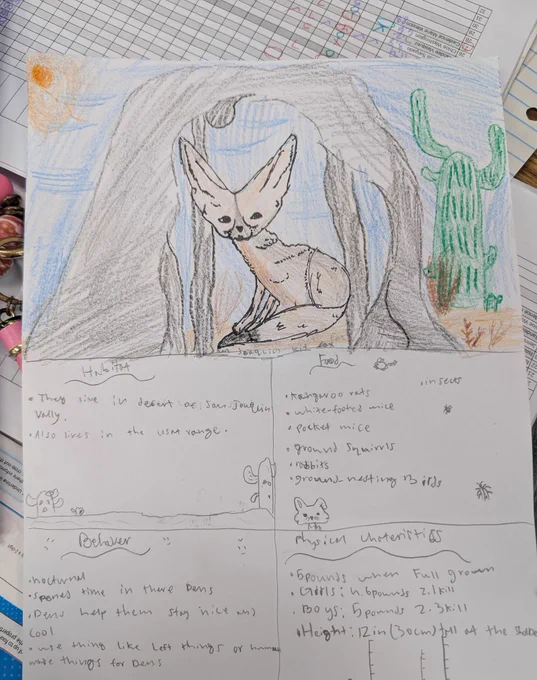 San Joaquin kit fox
Habitat
• They live in desert at San Joaquin
Vally.
• Also lives in the usm range.
Food
• Kangaroo rats
• insects
• white-footed mice
• Pocket mice
• ground squirrels
• rabbits
• ground nesting Birds
Behaver
• nocturnal
• spened time in there Dens
• Dens help them stay nice and
cool
• use thing like Left things or human
made things for Dens
Physical Choteristics
• 5 pounds when Full grown
• Girls: 4.6 pounds 2.1 kill
• Boys: 5 pounds 2.3 kill
• Height: 12 in (30 cm) tall at the